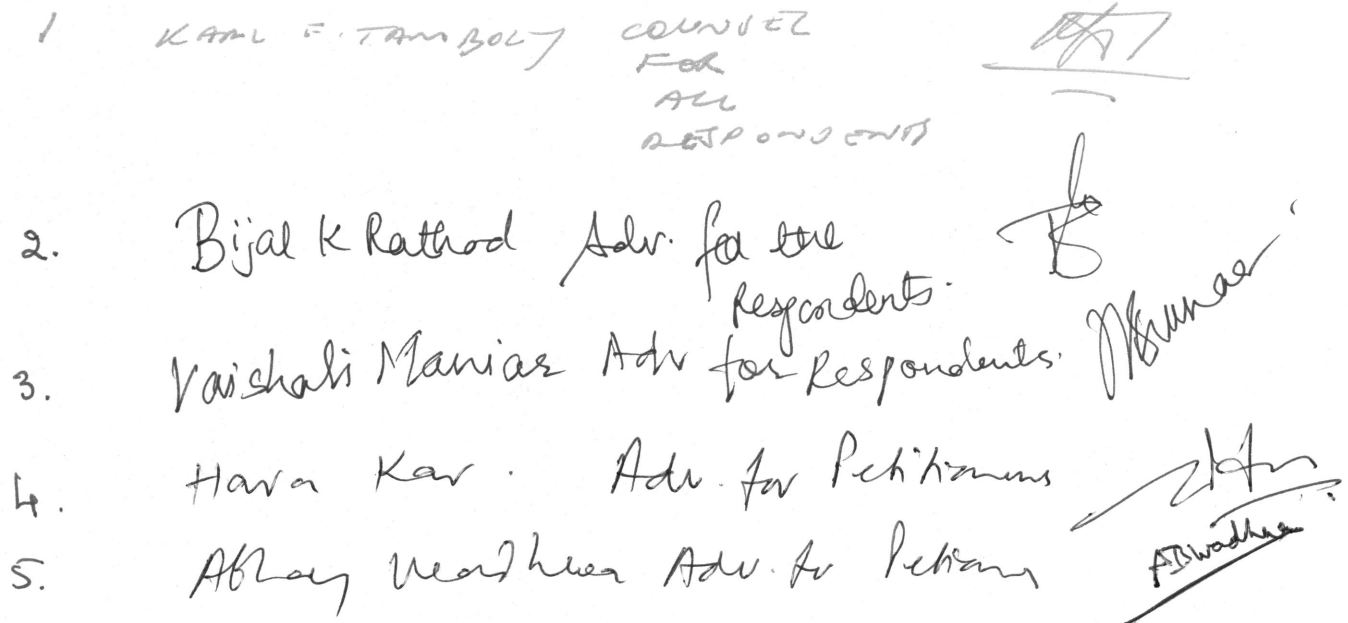 1 KARL F. TAMBOLY COUNSEL
FOR
ALL
RESPONDENTS
2. Bijal K Rathod Adv. for the
Respondents.
3. Vaishali Maniar Adv for Respondents.
4. Hara Kar. Adv. for Petitioners
5. Abhay Wadhwa Adv. for
ABWadhwa